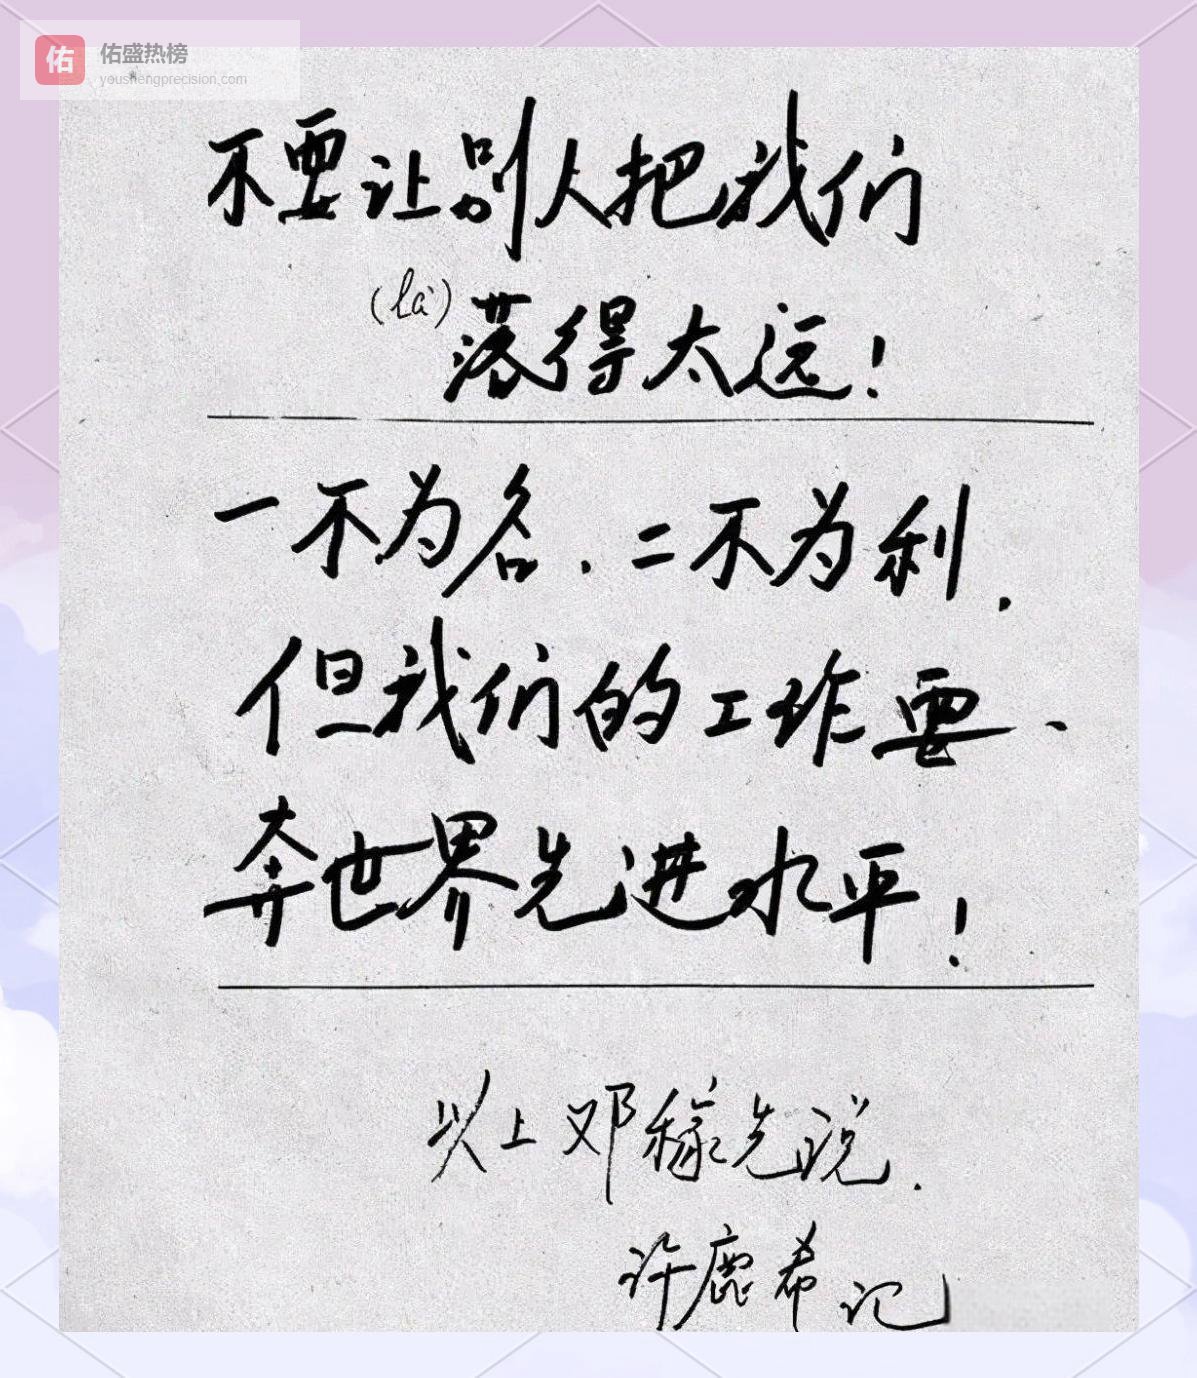 佑
佑盛热榜
youshengprecision.com
不要让别人把我们
(là)
落得太远!
一不为名、二不为利,
但我们的工作要、
奔世界先进水平!
以上邓稼先说.
许鹿希记